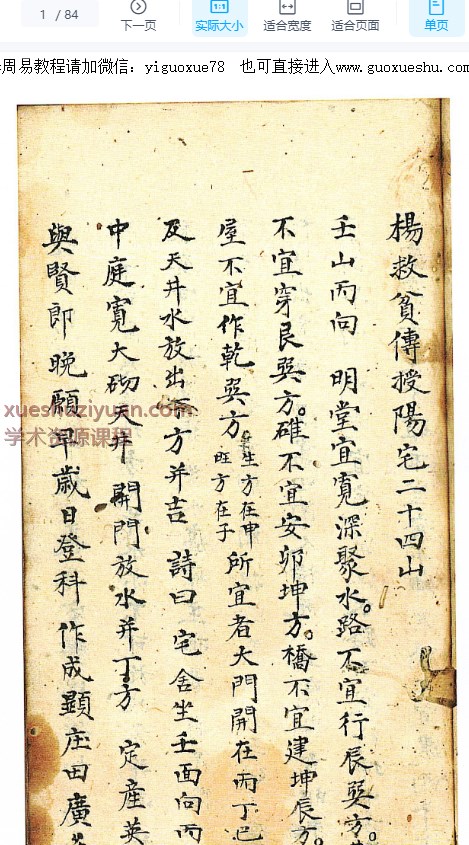 1 / 84
下一页
实际大小
适合宽度
适合页面
单页
周易教程请加微信：yiguoxue78 也可直接进入www.guoxueshu.com
楊救貧傳授陽宅二十四山
壬山丙向 明堂宜寬深聚水。路不宜行辰巽方。
不宜穿艮巽方。碓不宜安卯坤方。橋不宜建坤辰方。
屋不宜作乾巽方。生方在申旺方在子所宜者大門開在丙丁巳
及天井水放出 方并吉 詩曰 宅舍坐壬面向丙
中庭寬大砌天井 開門放水并丁方 定產英
與賢郎晚願早歲日登科 作成顯庄田廣
xueshuziyuan.com
学术资源课程